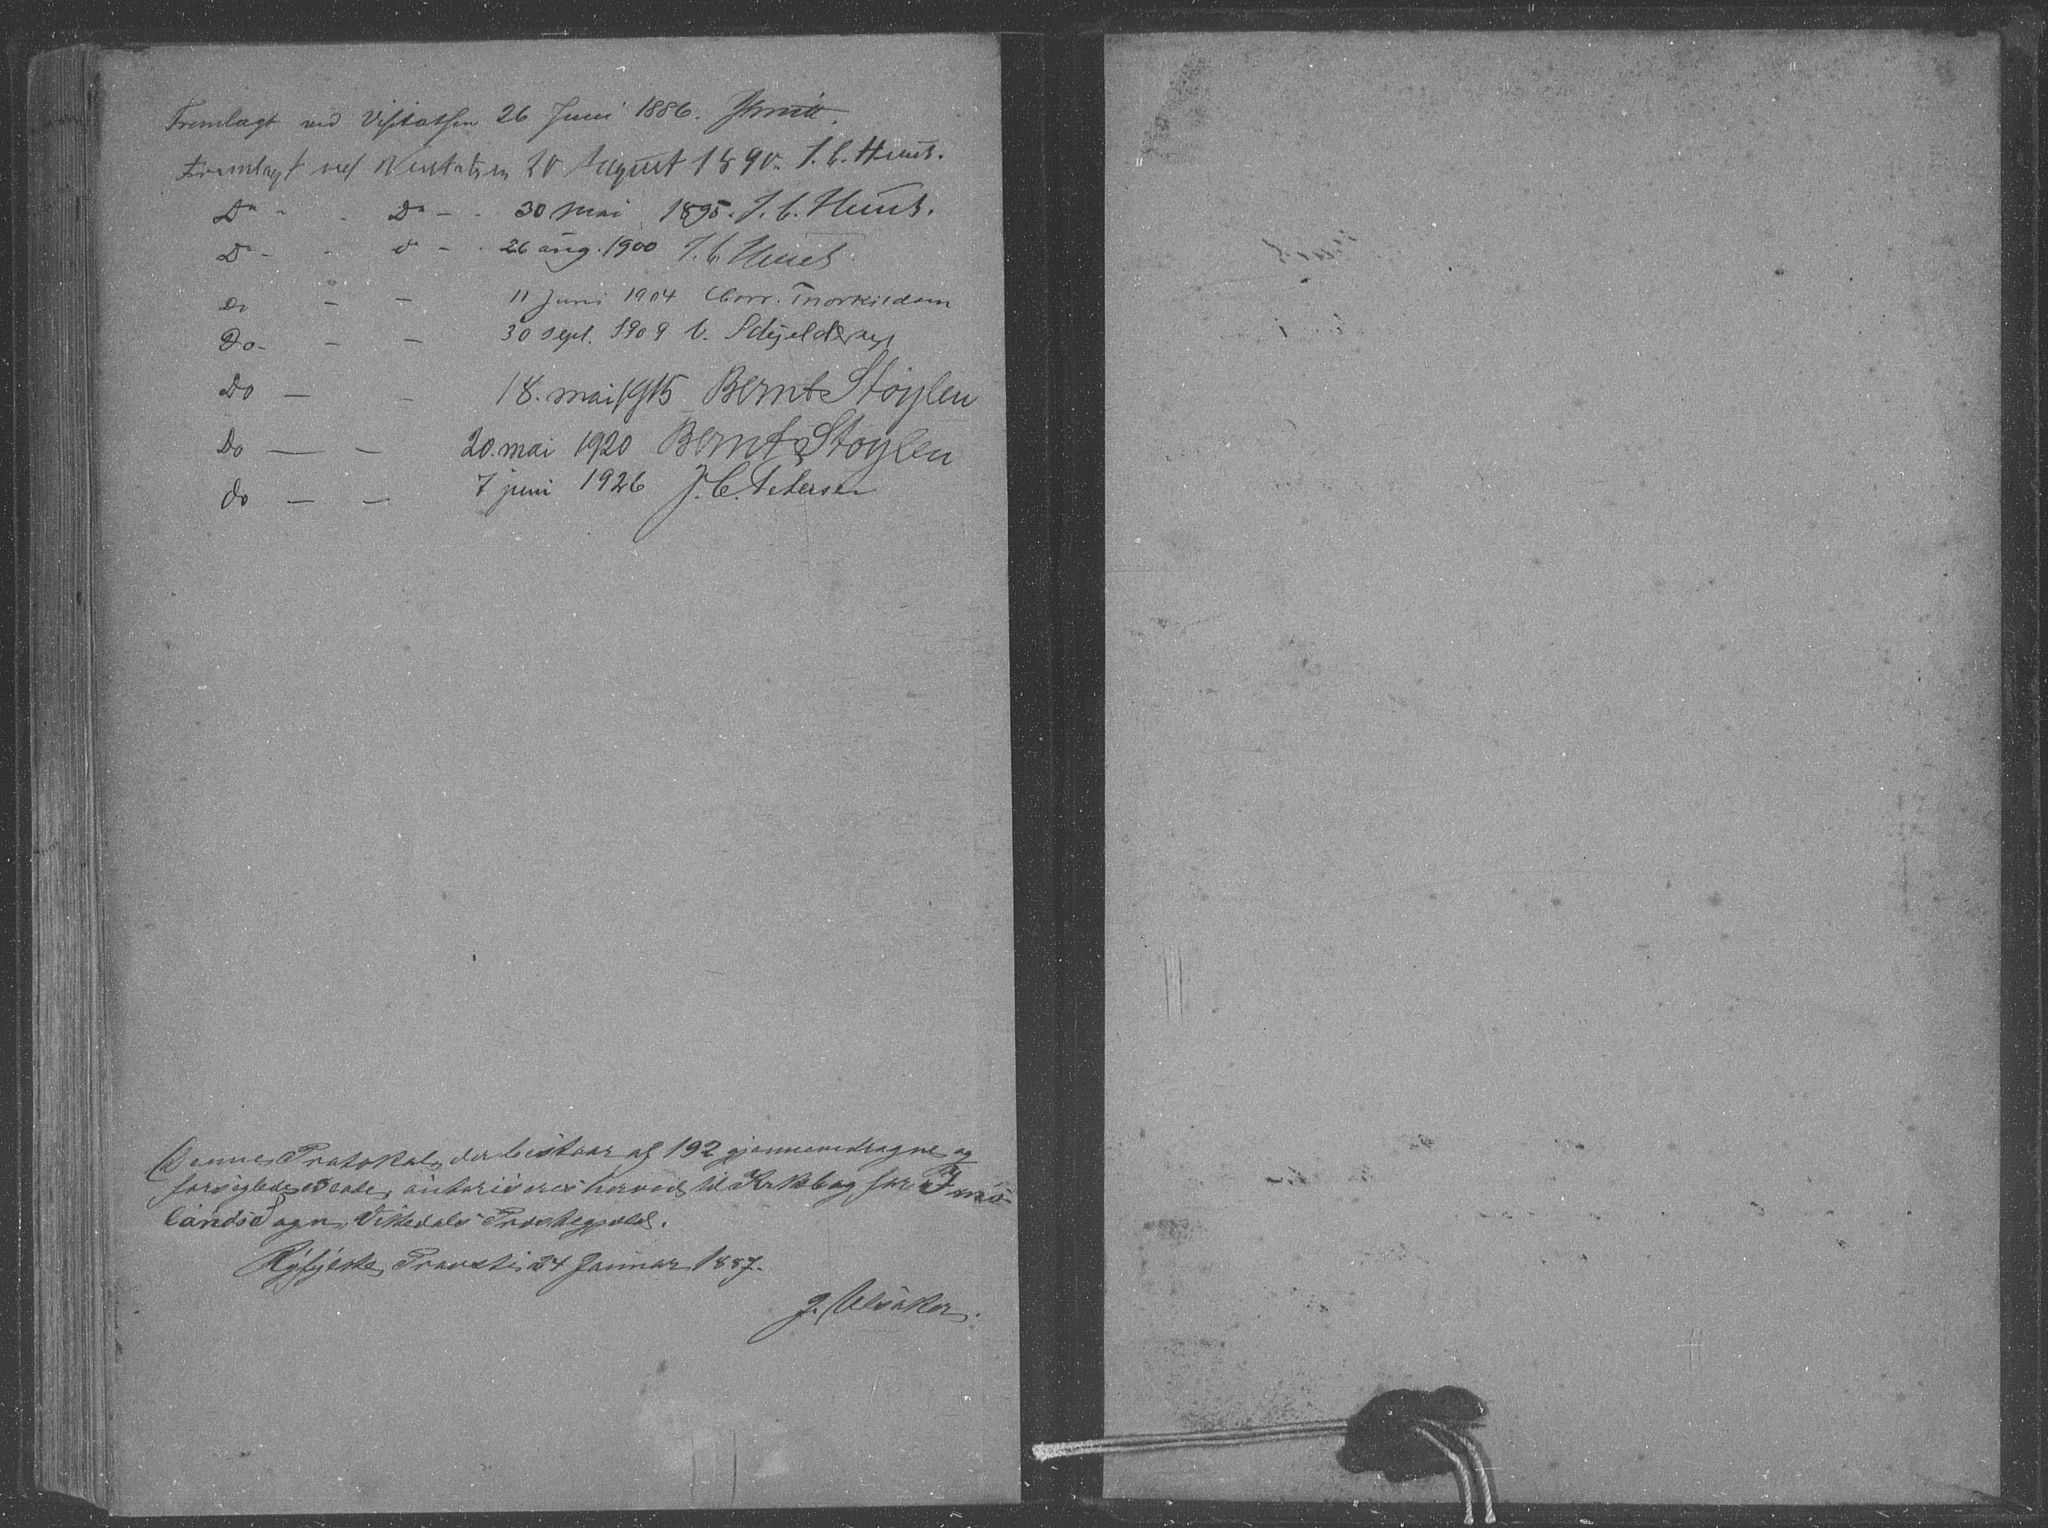 Fremlagt ved Visitatsen 26 Juni 1886.
Fremlagt ved Visitatsen 20 August 1890. J. C. Heuch.
Do - - Do - - 30 Mai 1895. J. C. Heuch.
Do - - do - - 26 aug. 1900 J. C. Heuch
do - - 11 Juni 1904 Chorr. Thorkildsen
Do - - - 30 sept. 1909 V. Schjelderup
Do — - 18. mai 1915 Bernt Støylen
Do — — 20. mai 1920 Bernt Støylen
do — — 7 juni 1926 J. C. Petersen
Denne Protokol, der bestaar af 192 gjennemdragne og
forseglede Blade, autoriseres herved til Kirkebog for Ims-
lands Sogn, Vikedals Præstegjeld.
Ryfylke Provsti 24 Januar 1887.